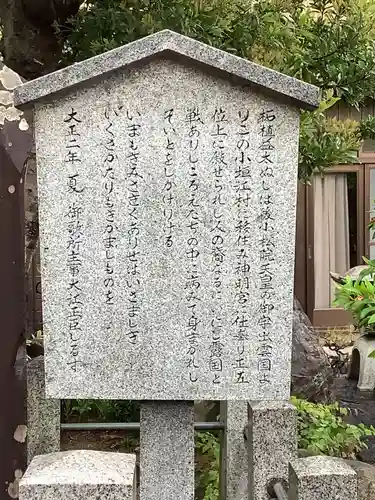 柘植益太ぬしは後小松院天皇の御宇出雲国よ
りこの小垣江村に移住み神明宮に仕奉り正五
位上に叙せられし人の裔なるにいにし露国と
戦ありしころえたちの中に病みて身まかれし
そいとをしかりける
いまもきみさきくありせはいさましき
いくさかたりもきかましものを
大正二年夏 御歌所主事大江正臣しるす